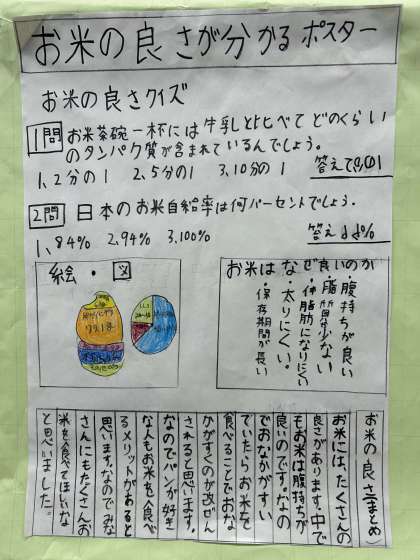 お米の良さが分かるポスター
お米の良さクイズ
1問 お米茶碗一杯には牛乳と比べてどのくらい
のタンパク質が含まれているんでしょう。
1、2分の1 2、5分の1 3、10分の1
2問 日本のお米自給率は何パーセントでしょう。
1、84% 2、94% 3、100%
絵・図
お米はなぜ良いのか
・腹持ちが良い
・脂質少ない
・体脂肪になりにくい
・太りにくい。
・保存期間が長い
お米の良さ(まとめ)
お米には、たくさんの
良さがあります。中で
もお米は腹持ちが
良いのです。なの
でおなかがすい
ていたらお米を
食べることでおな
かがすくのが改ぜん
されると思います。
なのでパンが好き
な人もお米も食べ
るメリットがあると
思います。なのでみな
さんにもたくさんお
米を食べてほしいな
と思いました。